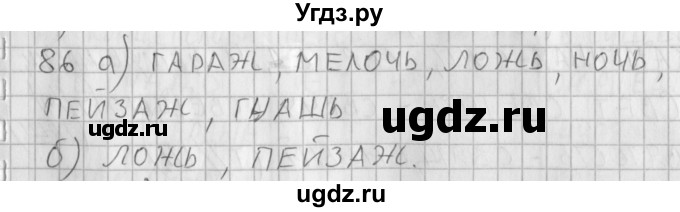 Угдз.ру
86 а) ГАРАЖ, МЕЛОЧЬ, ЛОЖЬ, НОЧЬ,
ПЕЙЗАЖ, ГУАШЬ
б) ЛОЖЬ, ПЕЙЗАЖ.
ugdz.ru
ugdz.ru
ugdz.ru
©
ugdz.ru
ugdz.ru